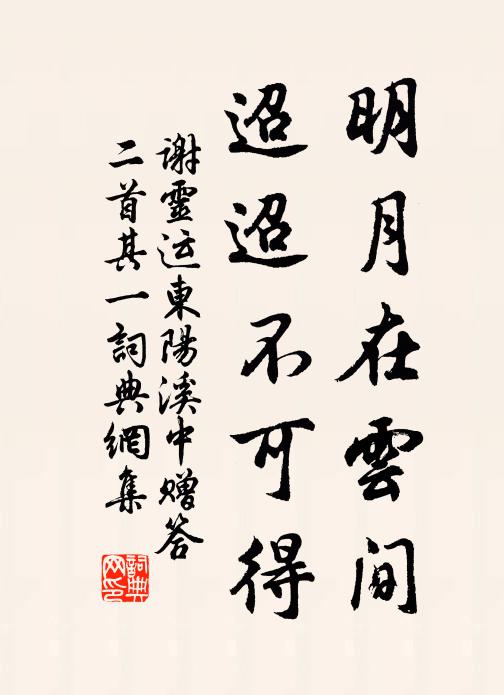 明月在雲間
迢迢不可得
谢靈运東陽溪中赠答
二首其一詞典網集
詞典网印